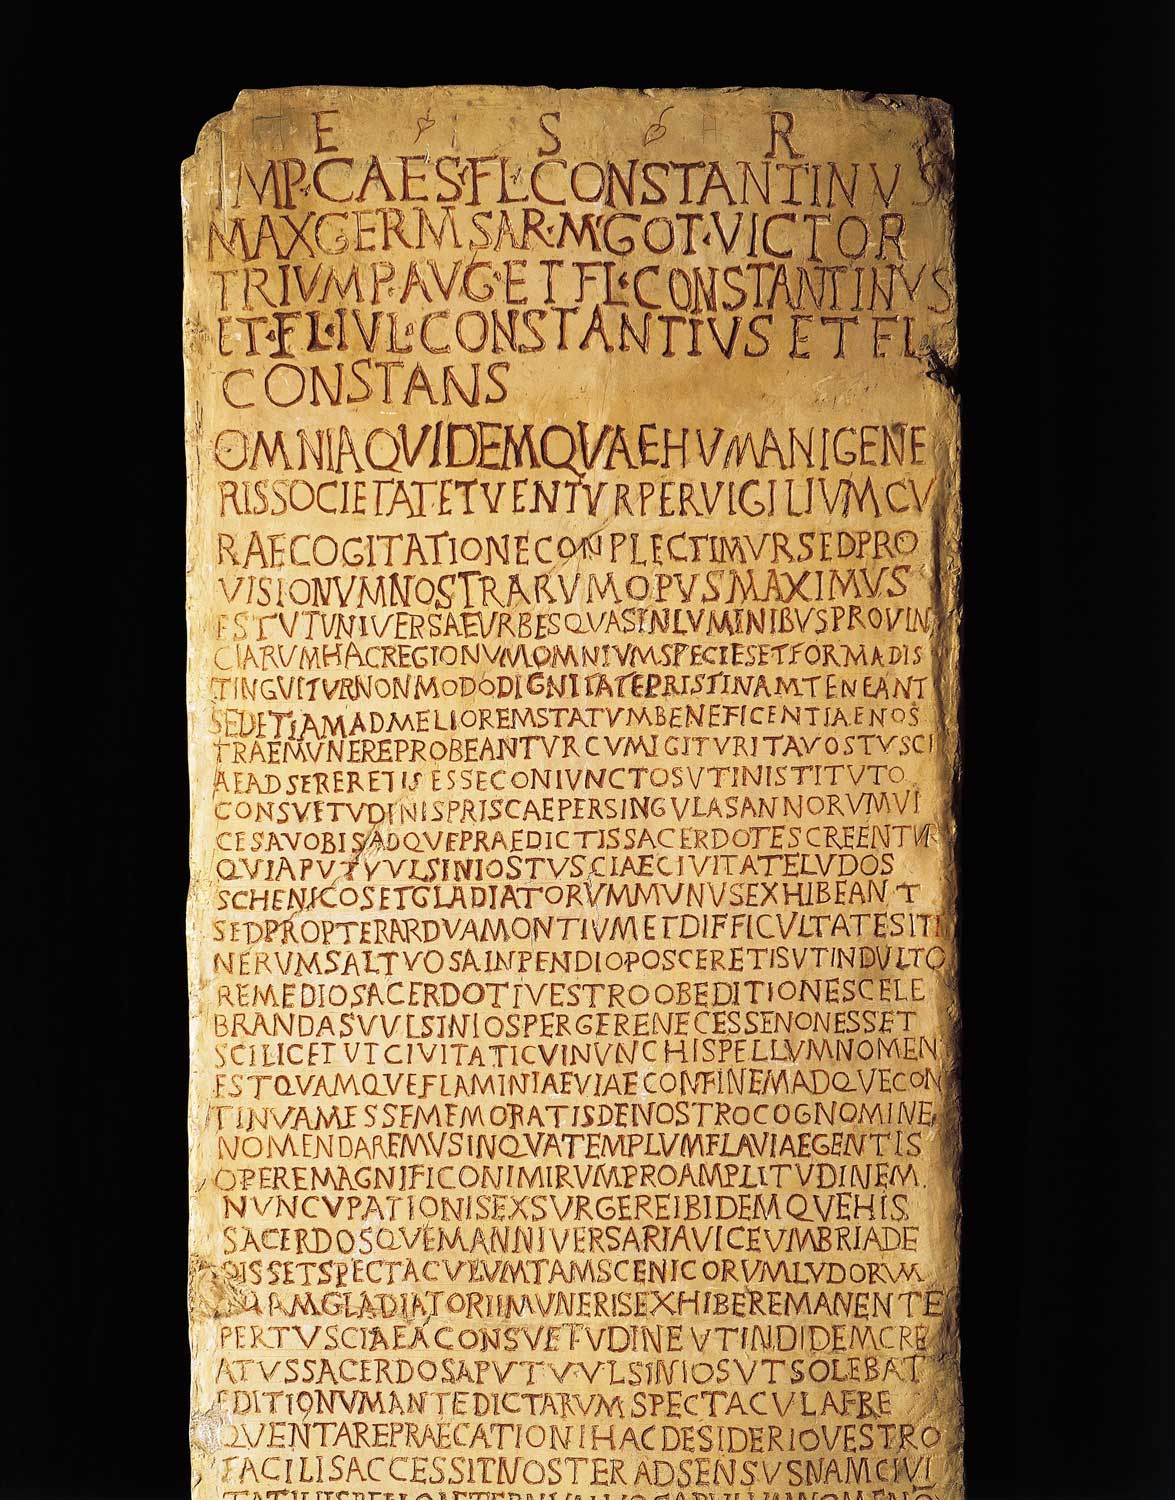 E S R
IMP·CAES·FL·CONSTANTINVS
MAXGERM·SAR·M·GOT·VICTOR
TRIVMP·AVG·ET FL·CONSTANTINVS
ET·FL·IVL·CONSTANTIVS ET FL
CONSTANS
OMNIAQVIDEMQVAEHVMANIGENE
RISSOCIETATETVENTVRPERVIGILIVMCV
RAECOGITATIONECONPLECTIMVRSEDPRO
VISIONVMNOSTRARVMOPVSMAXIMVS
ESTVTVNIVERSAEVRBESQVASINLVMINIBVSPROVIN
CIARVMHACREGIONVMOMNIVMSPECIESETFORMADIS
TINGVITVRNONMODODIGNITATEPRISTINAMTENEANT
SEDETIAMADMELIOREMSTATVMBENEFICENTIAENOS
TRAEMVNEREPROBEANTVRCVMIGITVRITAVOSTVSCI
AEADSERERETIS ESSECONIVNCTOSVTINISTITVTO
CONSVETVDINISPRISCAEPERSINGVLASANNORVMVI
CESAVOBISADQVEPRAEDICTISSACERDOTESCREENTVR
QVIAPVTVVLSINIOSTVSCIAECIVITATELVDOS
SCHENICOSETGLADIATORVMMVNVSEXHIBEANT
SEDPROPTERARDVAMONTIVMETDIFFICVLTATESITI
NERVMSALTVOSAINPENDIOPOSCERETISVTINDVLTO
REMEDIOSACERDOTIVESTROOBEDITIONESCELE
BRANDASVVLSINIOSPERGERENECESSENONESSET
SCILICETVTCIVITATICVINVNCHISPELLVMNOMEN
ESTQVAMQVEFLAMINIAEVIAECONFINEMADQVECON
TINVAMESSEMEMORATISDENOSTROCOGNOMINE
NOMENDAREMVSINQVATEMPLVMFLAVIAEGENTIS
OPEREMAGNIFICONIMIRVMPROAMPLITVDINEM
NVNCVPATIONISEXSVRGEREIBIDEMQVEHIS
SACERDOSQVEMANNIVERSARIAVICEVMBRIADE
DISSETSPECTACVLVMTAMSCENICORVMLVDORVM
QVAMGLADIATORIIMVNERISEXHIBEREMANENTE
PERTVSCIAEACONSVETVDINEVTINDIDEMCRE
ATVSSACERDOSAPVTVVLSINIOSVTSOLEBAT
EDITIONVMANTEDICTARVMSPECTACVLAFRE
QVENTAREPRAECATIONIHACDESIDERIOVESTRO
FACILISACCESSITNOSTERADSENSVSNAMCIVI